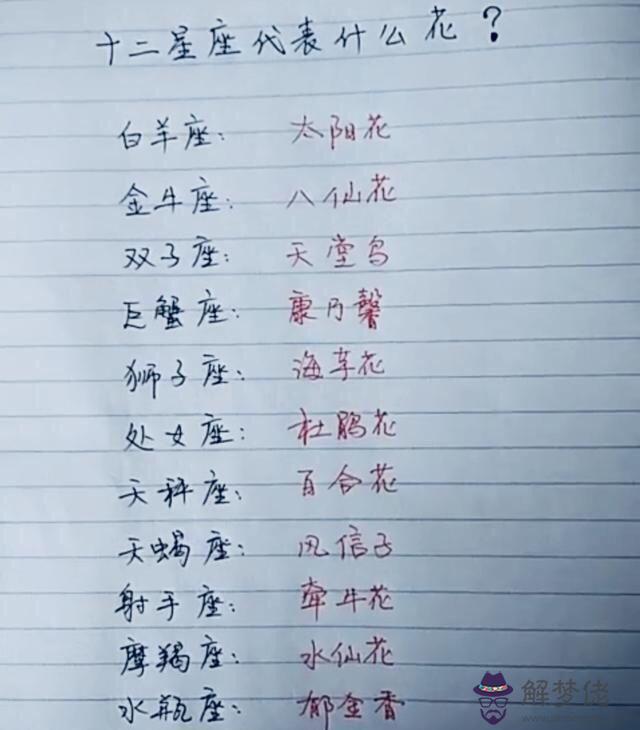 十二星座代表什么花？
白羊座： 太阳花
金牛座： 八仙花
双子座： 天堂鸟
巨蟹座： 康乃馨
狮子座： 海芋花
处女座： 杜鹃花
天秤座： 百合花
天蝎座： 风信子
射手座： 牵牛花
摩羯座： 水仙花
水瓶座： 郁金香
解梦佬